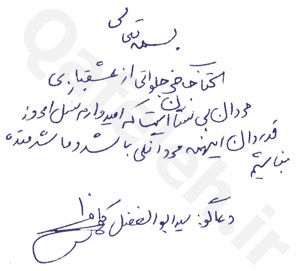 بسمه تعالی
کتاب حاضر جلواتی از عشقبازی
مردان بی نشان است که امیدوارم نسل امروز
قدردان اینهمه مردانگی باشد و ما شرمنده
نباشیم
دعاگو: سید ابوالفضل
Qafeleh.ir